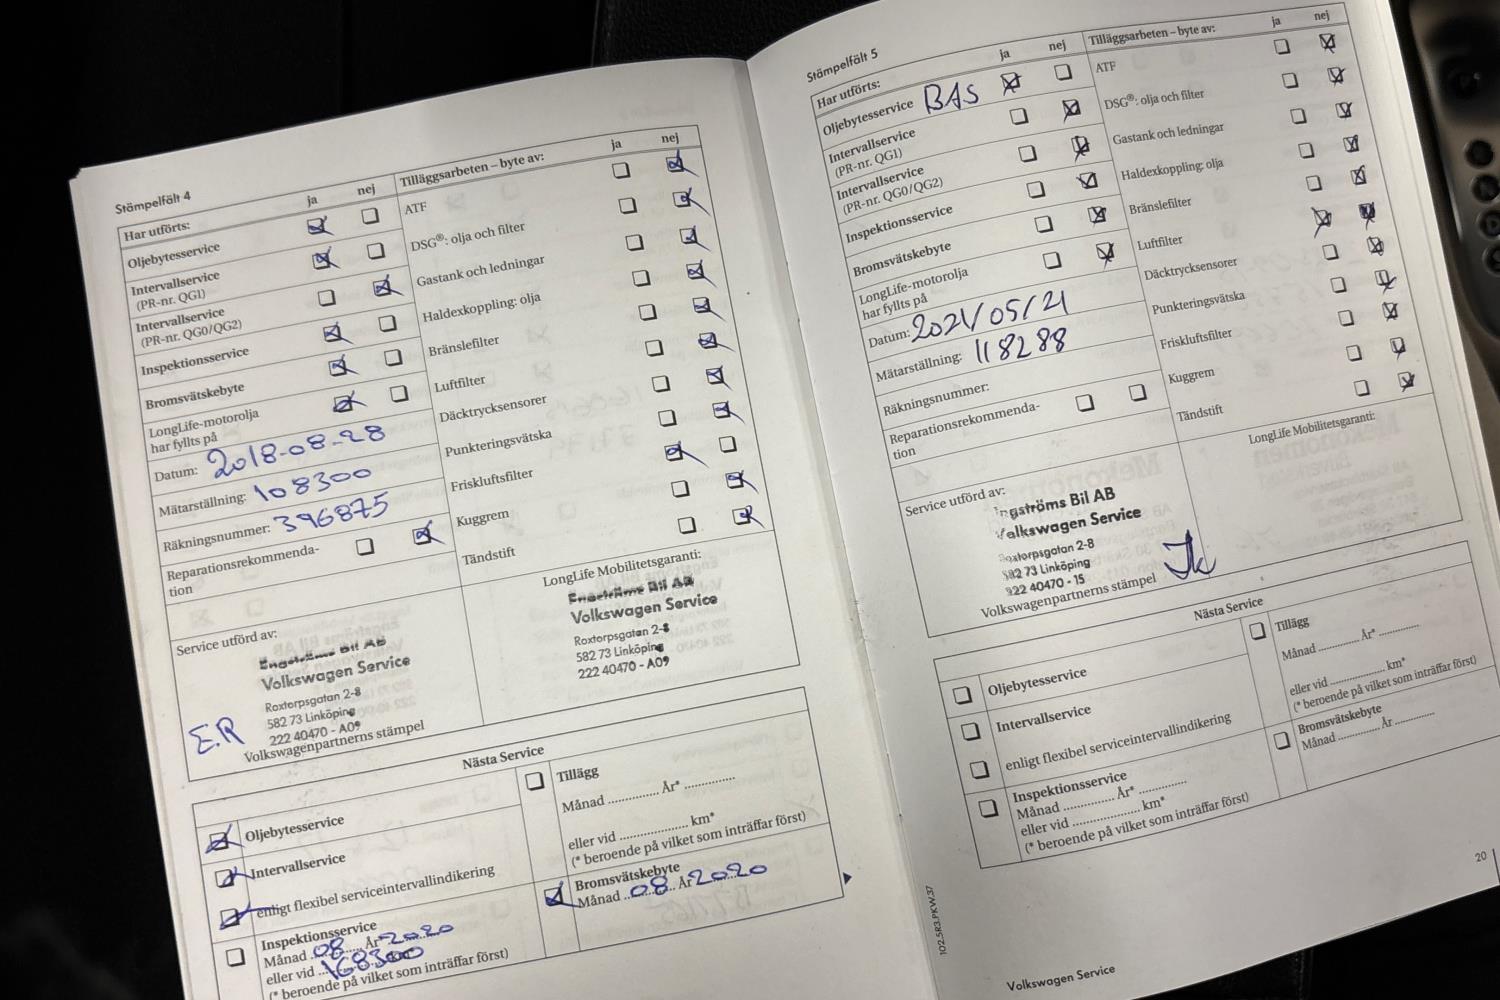 Stämpelfält 4
Har utförts: ja nej
Oljebytesservice
Intervallservice
(PR-nr. QG1)
Intervallservice
(PR-nr. QG0/QG2)
Inspektionsservice
Bromsvätskebyte
LongLife-motorolja
har fyllts på
Datum: 2018-08-28
Mätarställning: 108300
Räkningsnummer: 396875
Reparationsrekommenda-
tion
Tilläggsarbeten – byte av: ja nej
ATF
DSG®: olja och filter
Gastank och ledningar
Haldexkoppling: olja
Bränslefilter
Luftfilter
Däcktrycksensorer
Punkteringsvätska
Friskluftsfilter
Kuggrem
Tändstift
Service utförd av:
Engströms Bil AB
Volkswagen Service
Roxtorpsgatan 2-8
582 73 Linköping
222 40470 - A09
E.R
Volkswagenpartnerns stämpel
LongLife Mobilitetsgaranti:
Engströms Bil AB
Volkswagen Service
Roxtorpsgatan 2-8
582 73 Linköping
222 40470 - A09
Nästa Service
Oljebytesservice
Intervallservice
enligt flexibel serviceintervallindikering
Inspektionsservice
Månad 08 År* 2020
eller vid 168300 km*
(* beroende på vilket som inträffar först)
Tillägg
Månad .............. År* ..............
eller vid .................... km*
(* beroende på vilket som inträffar först)
Bromsvätskebyte
Månad 08 År 2020
Stämpelfält 5
Har utförts: ja nej
Oljebytesservice BAS
Intervallservice
(PR-nr. QG1)
Intervallservice
(PR-nr. QG0/QG2)
Inspektionsservice
Bromsvätskebyte
LongLife-motorolja
har fyllts på
Datum: 2021/05/21
Mätarställning: 118288
Räkningsnummer:
Reparationsrekommenda-
tion
Tilläggsarbeten – byte av: ja nej
ATF
DSG®: olja och filter
Gastank och ledningar
Haldexkoppling: olja
Bränslefilter
Luftfilter
Däcktrycksensorer
Punkteringsvätska
Friskluftsfilter
Kuggrem
Tändstift
Service utförd av:
Engströms Bil AB
Volkswagen Service
Roxtorpsgatan 2-8
582 73 Linköping
922 40470 - 15
Volkswagenpartnerns stämpel
LongLife Mobilitetsgaranti:
Nästa Service
Oljebytesservice
Intervallservice
enligt flexibel serviceintervallindikering
Inspektionsservice
Månad .............. År* ..............
eller vid .................... km*
(* beroende på vilket som inträffar först)
Tillägg
Månad .............. År* ..............
eller vid .................... km*
(* beroende på vilket som inträffar först)
Bromsvätskebyte
Månad .............. År ..............
102.5R3.PKW.37
Volkswagen Service
20